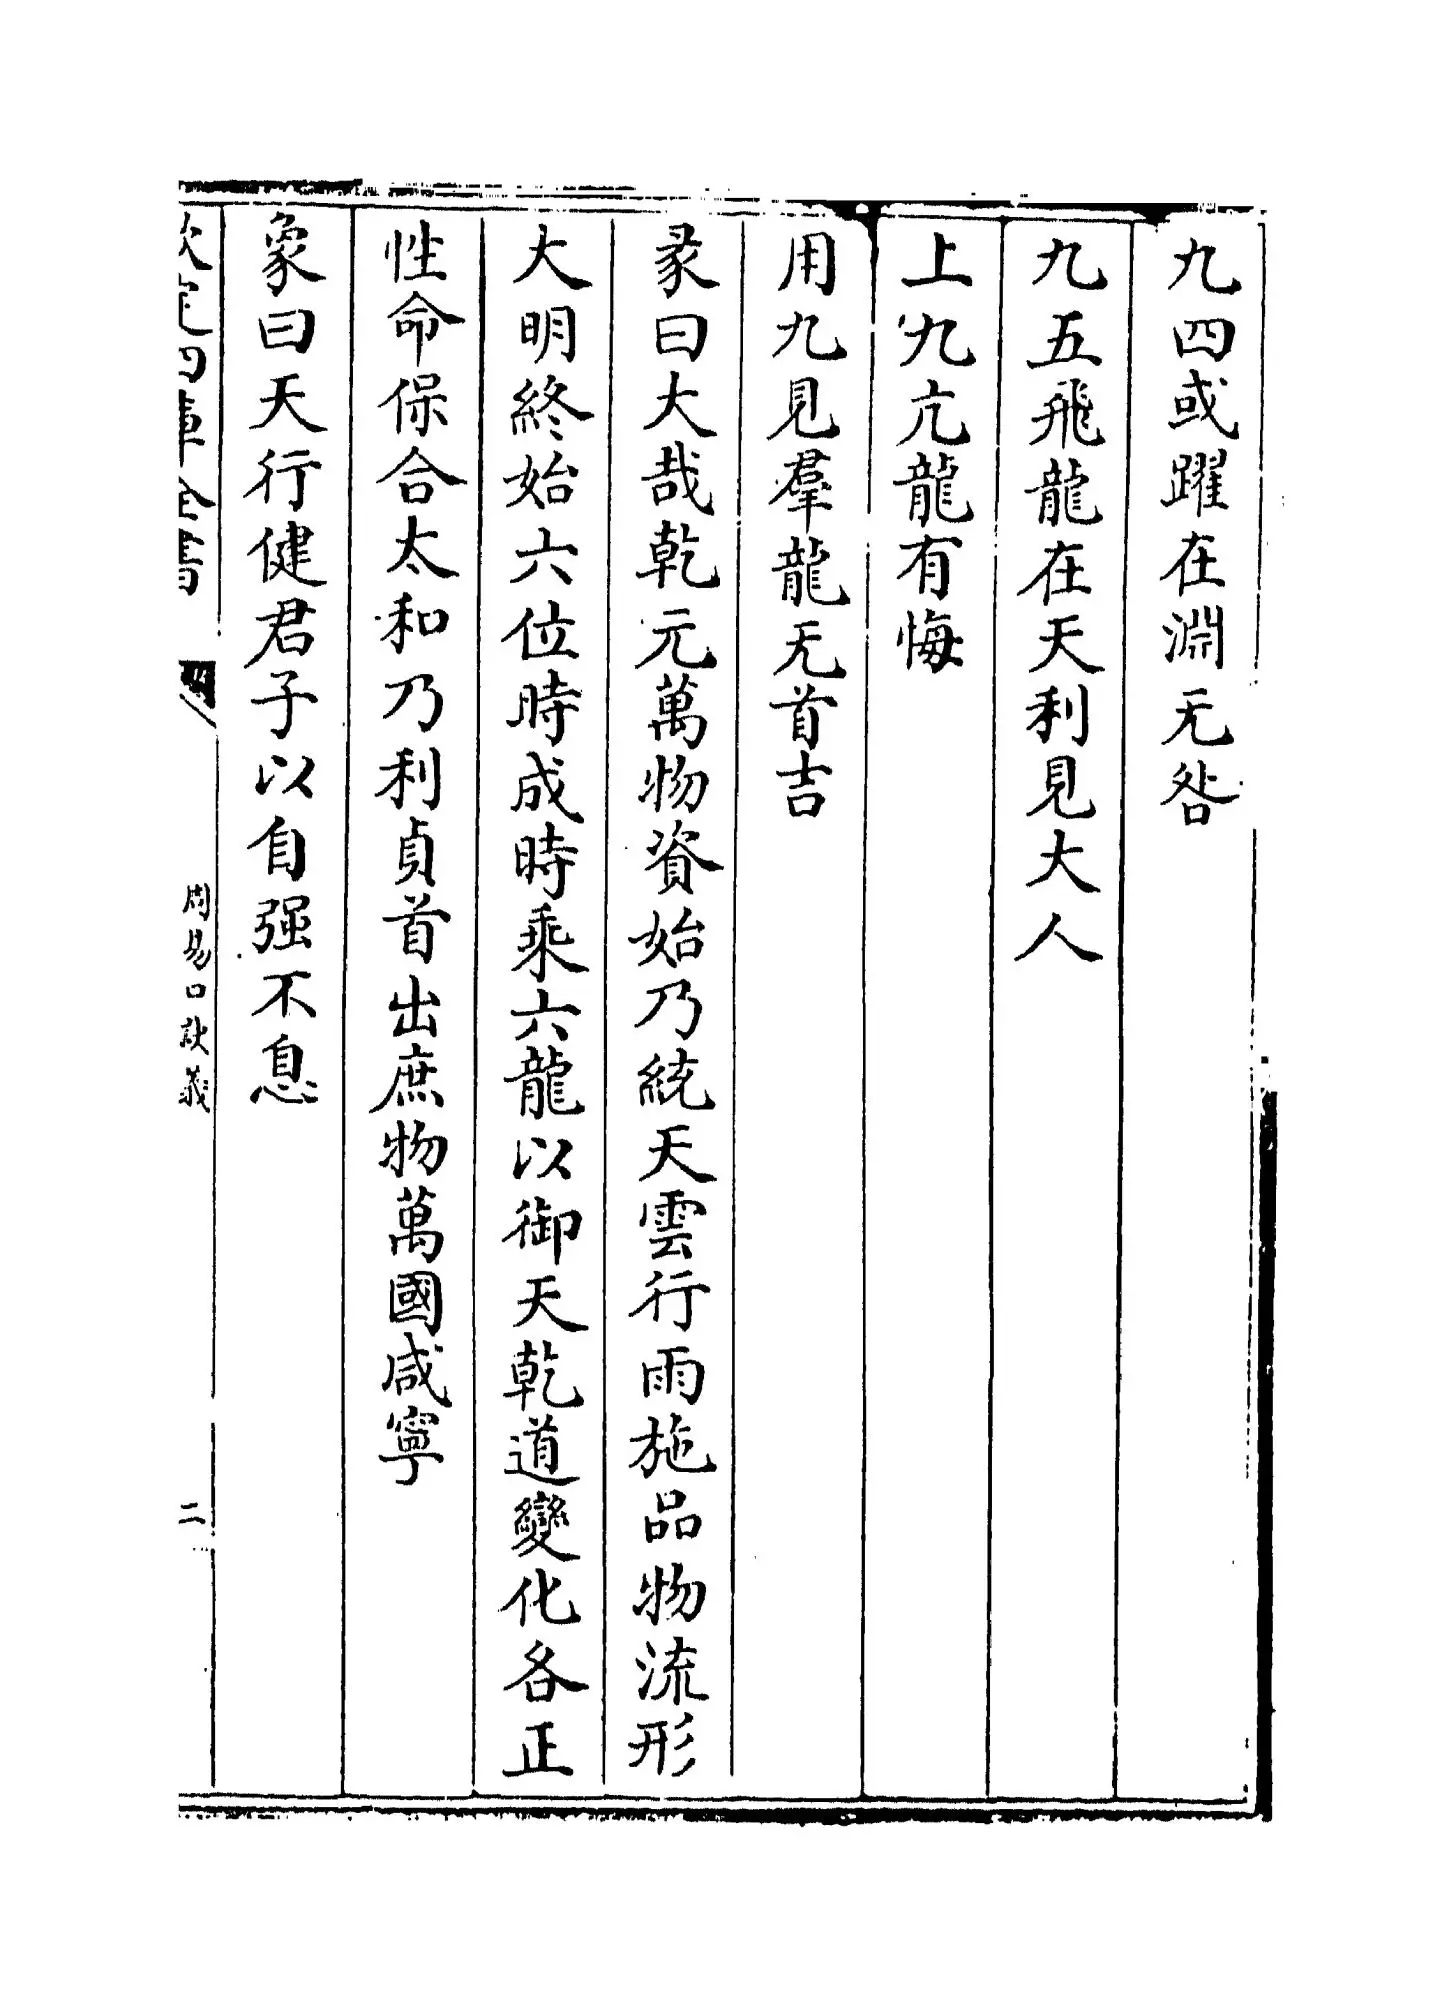 九四或躍在淵无咎
九五飛龍在天利見大人
上九亢龍有悔
用九見羣龍无首吉
彖曰大哉乾元萬物資始乃統天雲行雨施品物流形
大明終始六位時成時乘六龍以御天乾道變化各正
性命保合太和乃利貞首出庶物萬國咸寧
象曰天行健君子以自强不息
欽定四庫全書
周易口訣義
二